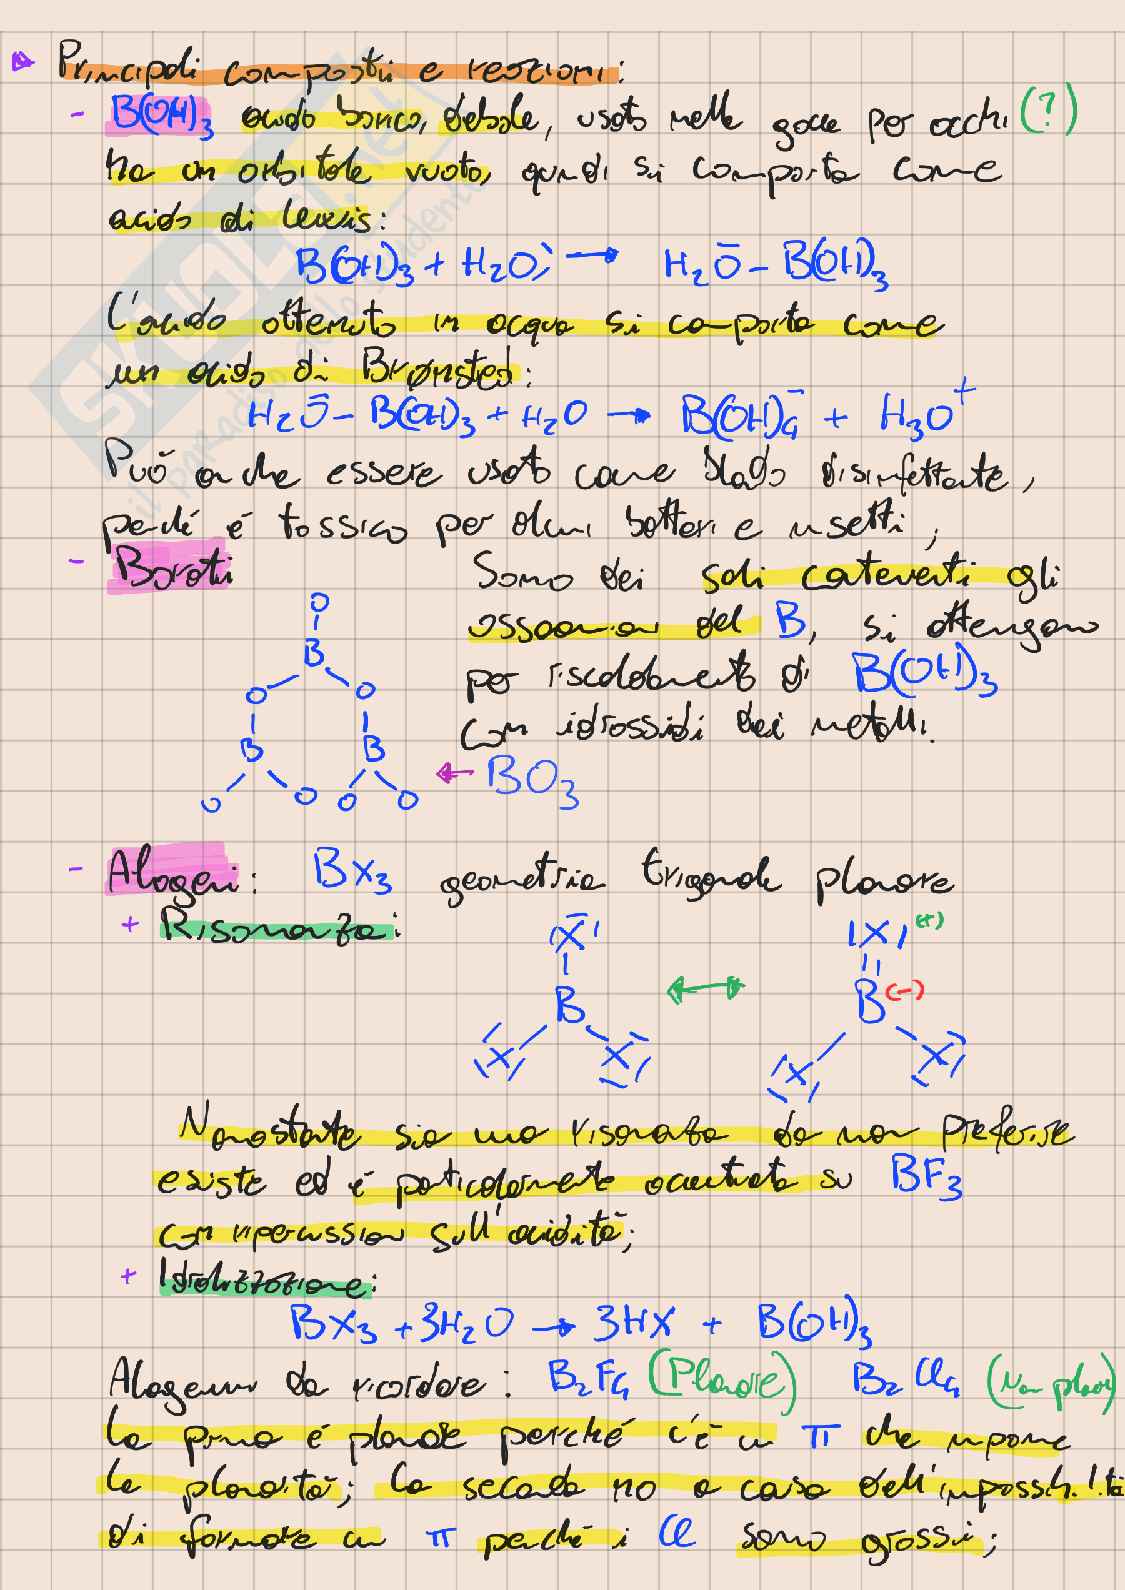 Principali composti e reazioni:
- B(OH)3 acido borico, debole, usato nelle gocce per occhi (?)
ha un orbitale vuoto, quindi si comporta come
acido di Lewis:
B(OH)3 + H2O: → H2O - B(OH)3
L'acido ottenuto in acqua si comporta come
un acido di Brønsted:
H2O - B(OH)3 + H2O → B(OH)4⁻ + H3O⁺
Può anche essere usato come blando disinfettante,
perché è tossico per alcuni batteri e insetti;
- Borati
Sono dei sali contenenti gli
ossoanioni del B, si ottengono
per riscaldamento di B(OH)3
con idrossidi dei metalli.
O
B
O O
B B
O O O O
← BO3
- Alogeni: BX3 geometria trigonale planare
+ Risonanza:
X ↔ X (+)
B B (-)
X X X X
Nonostante sia una risonanza da non preferire
esiste ed è particolarmente accentuata su BF3
con ripercussioni sull'acidità;
+ Idrolizzazione:
BX3 + 3H2O → 3HX + B(OH)3
Alogenuri da ricordare: B2F4 (Planare) B2Cl4 (Non planare)
la prima è planare perché c'è un π che impone
la planarità; la seconda no a causa dell'impossibilità
di formare un π perché i Cl sono grossi;
SKUOLA.net
il paradiso dello studente